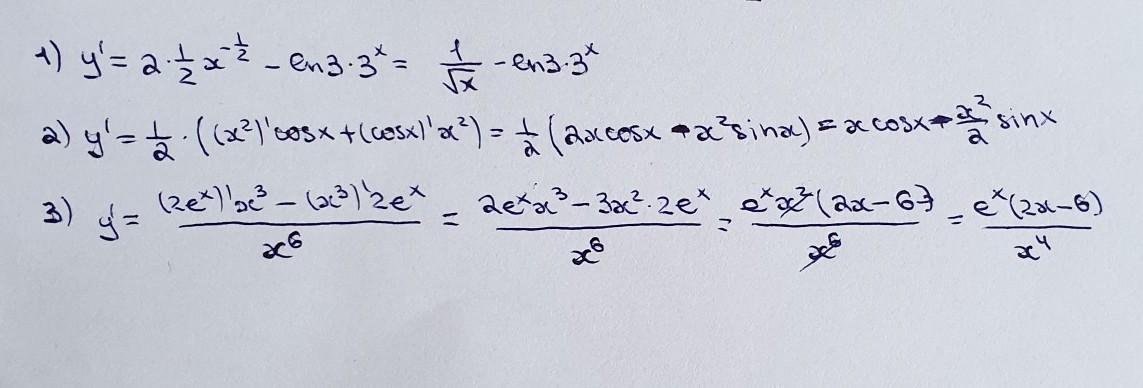 1) y' = 2 · 1/2 x^(-1/2) - ln3 · 3^x = 1/√x - ln3 · 3^x
2) y' = 1/2 · ((x²)' cosx + (cosx)' x²) = 1/2 (2x cosx - x² sinx) = x cosx - x²/2 sinx
3) y' = ((2e^x)' x³ - (x³)' 2e^x)/x⁶ = (2e^x x³ - 3x² · 2e^x)/x⁶ = (e^x x² (2x - 6))/x⁶ = e^x (2x - 6)/x⁴